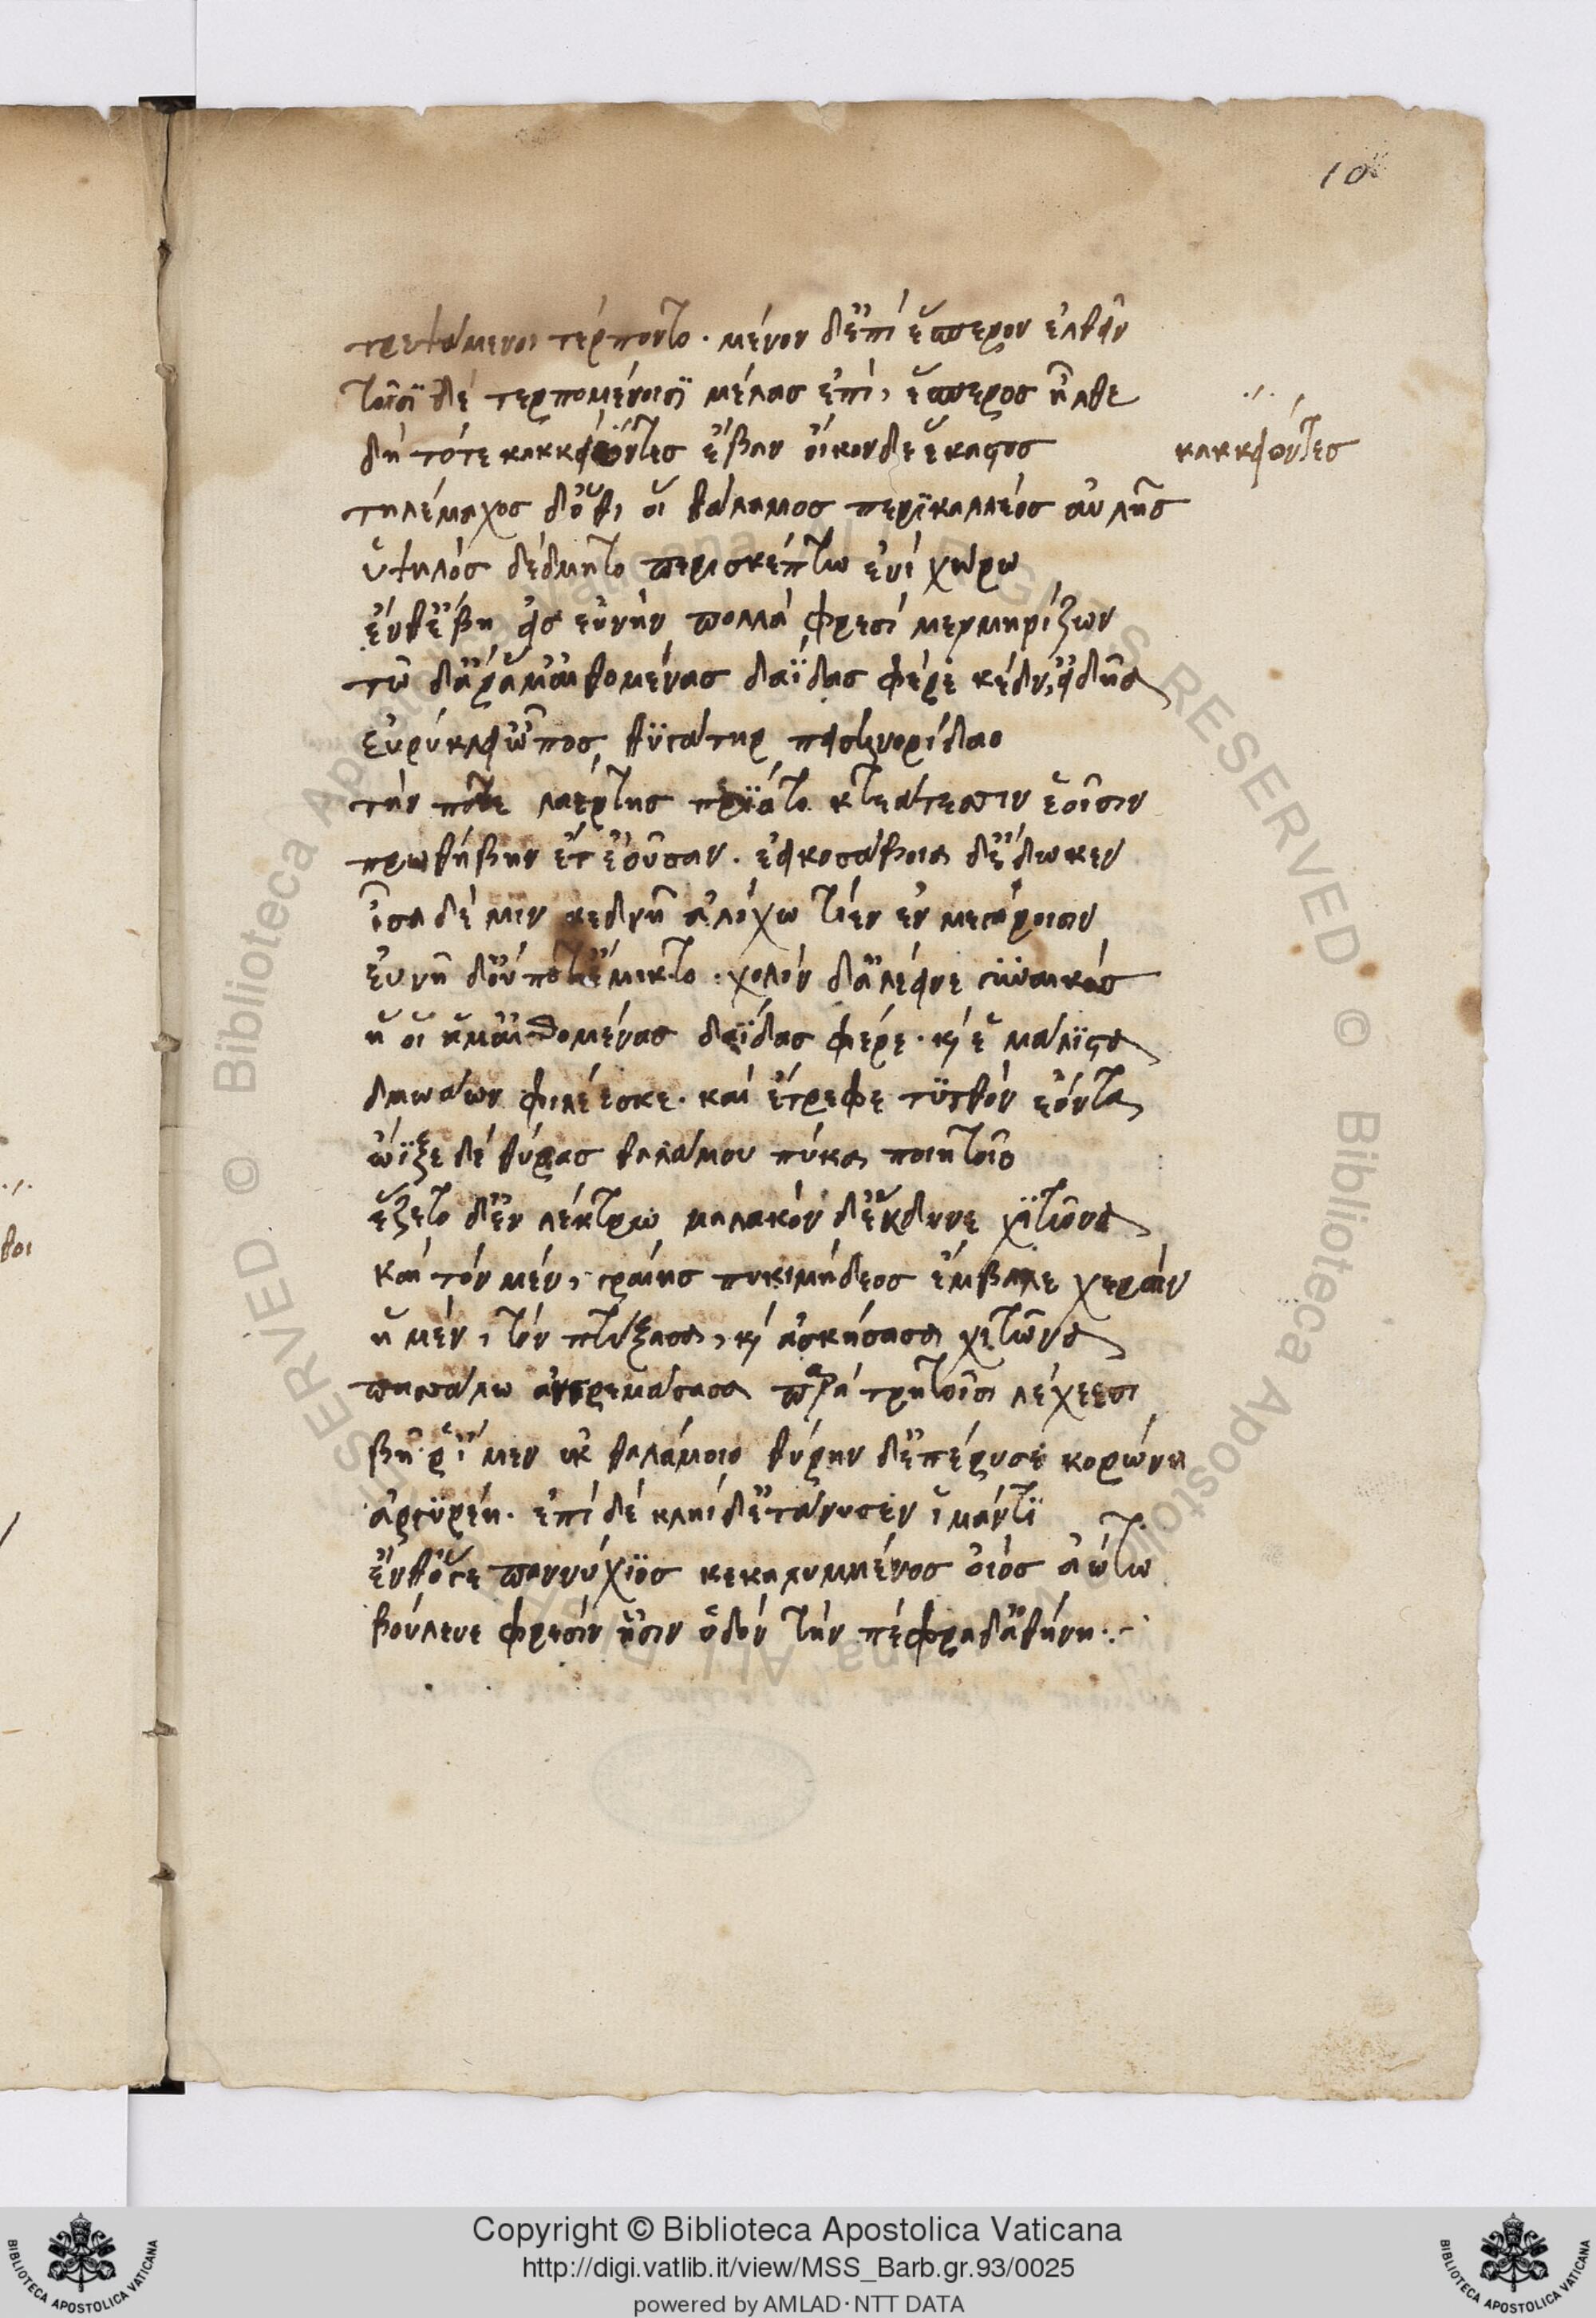 10
τρεψάμενοι τέρποντο. μένον δ'ἐπὶ ἕσπερον ἐλθεῖν
τοῖσι δὲ τερπομένοισι μέλας ἐπὶ, ἕσπερος ἦλθε
δὴ τότε κακκείοντες ἔβαν οἶκονδε ἕκαστος
κακκείοντες
τηλέμαχος δ'ὅθι οἱ θάλαμος περικαλλέος αὐλῆς
ὑψηλὸς δέδμητο περισκέπτω ἐνὶ χώρω
ἔνθ'ἔβη εἰς εὐνὴν πολλὰ φρεσὶ μερμηρίζων
τῶ δ'ἄρ'ἅμ'αἰθομένας δαΐδας φέρε κέδν'εἰδυῖα
εὐρύκλει'ὦπος θυγάτηρ πεισηνορίδαο
τήν ποτε λαέρτης πρίατο κτεάτεσσιν ἑοῖσιν
πρωθήβην ἔτ'ἐοῦσαν. ἐεικοσάβοια δ'ἔδωκεν
ἶσα δέ μιν κεδνῆ ἀλόχω τίεν ἐν μεγάροισιν
εὐνῆ δ'οὔποτ'ἔμικτο. χόλον δ'ἀλέεινε γυναικός
ἥ οἱ ἅμ'αἰθομένας δαΐδας φέρε. καί ἑ μάλιστα
δμωάων φιλέεσκε. καὶ ἔτρεφε τυτθὸν ἐόντα
ὤϊξε δὲ θύρας θαλάμου πύκα ποιητοῖο
ἕζετο δ'ἐν λέκτρω μαλακὸν δ'ἔκδυνε χιτῶνα
καὶ τὸν μέν, γραίης πυκιμήδεος ἔμβαλε χερσίν
ἡ μὲν, τὸν πτύξασα, καὶ ἀσκήσασα χιτῶνα
πασσάλω ἀγκρεμάσασα παρὰ τρητοῖσι λέχεσσι
βῆ ῥ'ἴμεν ἐκ θαλάμοιο θύρην δ'ἐπέρυσε κορώνη
ἀργυρέη. ἐπὶ δὲ κληῖδ'ἐτάνυσεν ἱμάντι
ἔνθ'ὅγε παννύχιος κεκαλυμμένος οἰὸς ἀώτω
βούλευε φρεσὶν ᾗσιν ὁδὸν τὴν πέφραδ'ἀθήνη
Copyright © Biblioteca Apostolica Vaticana
http://digi.vatlib.it/view/MSS_Barb.gr.93/0025
powered by AMLAD·NTT DATA